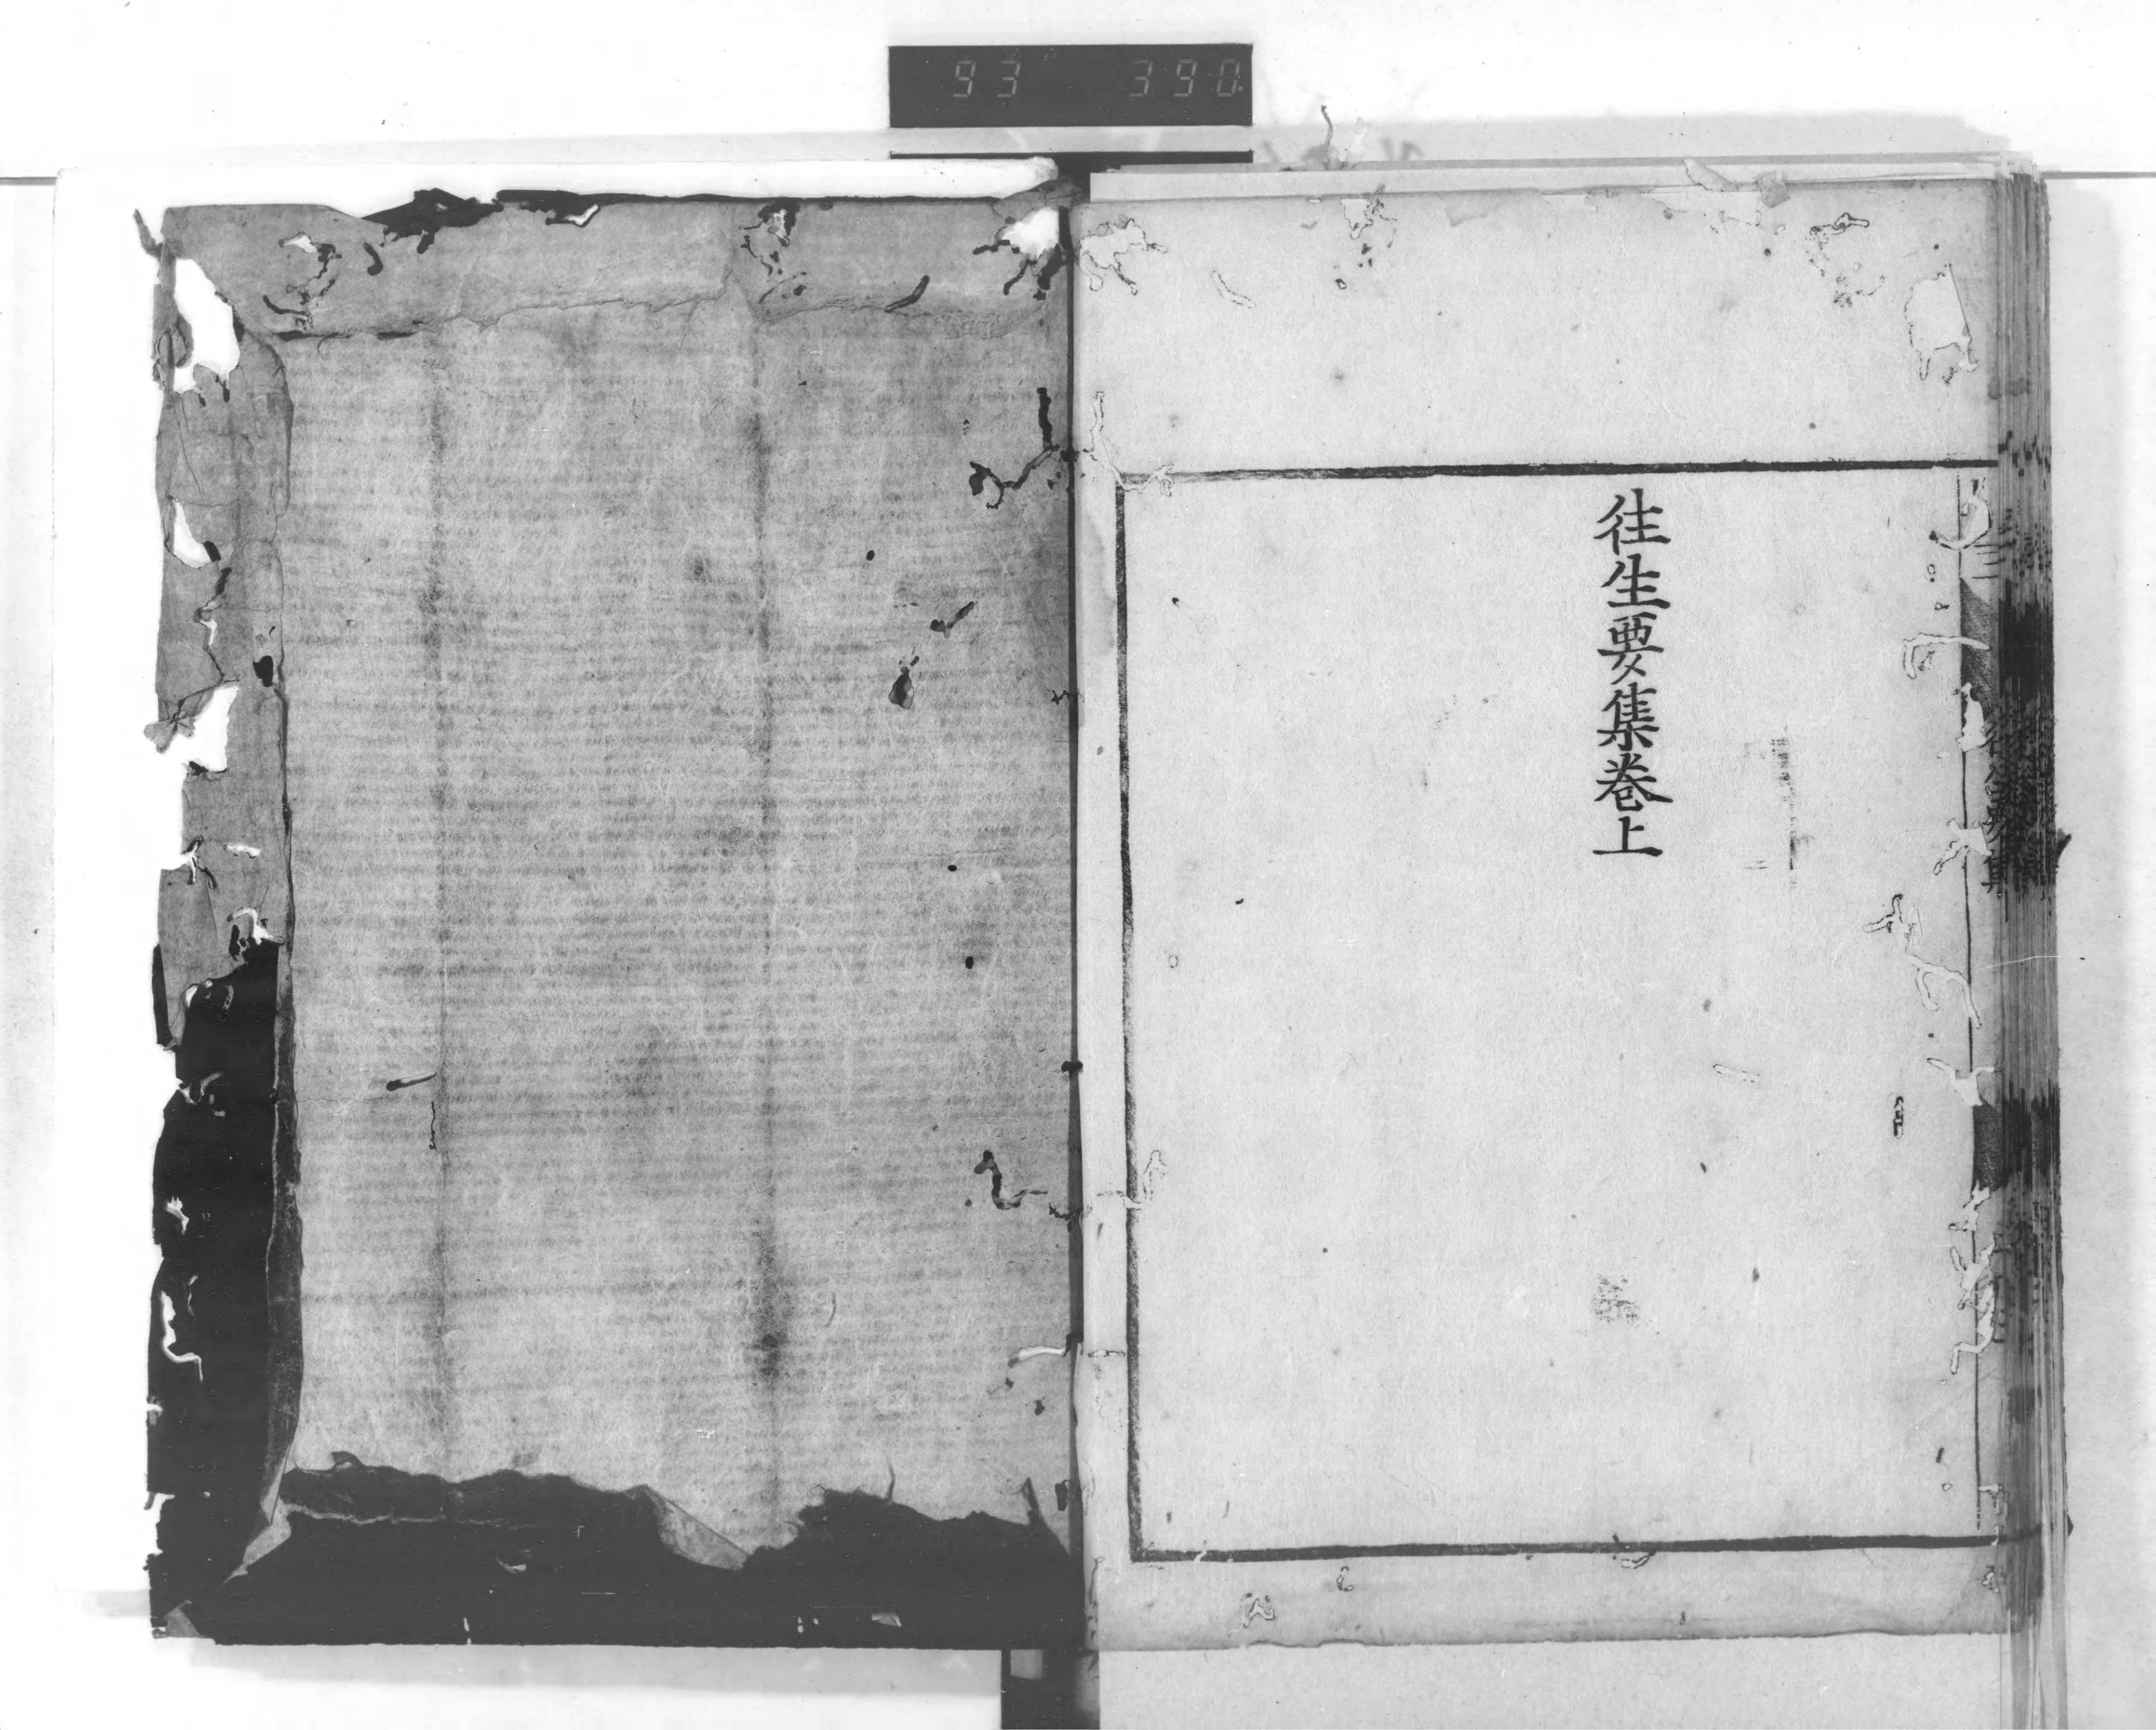 93 390
往生要集巻上